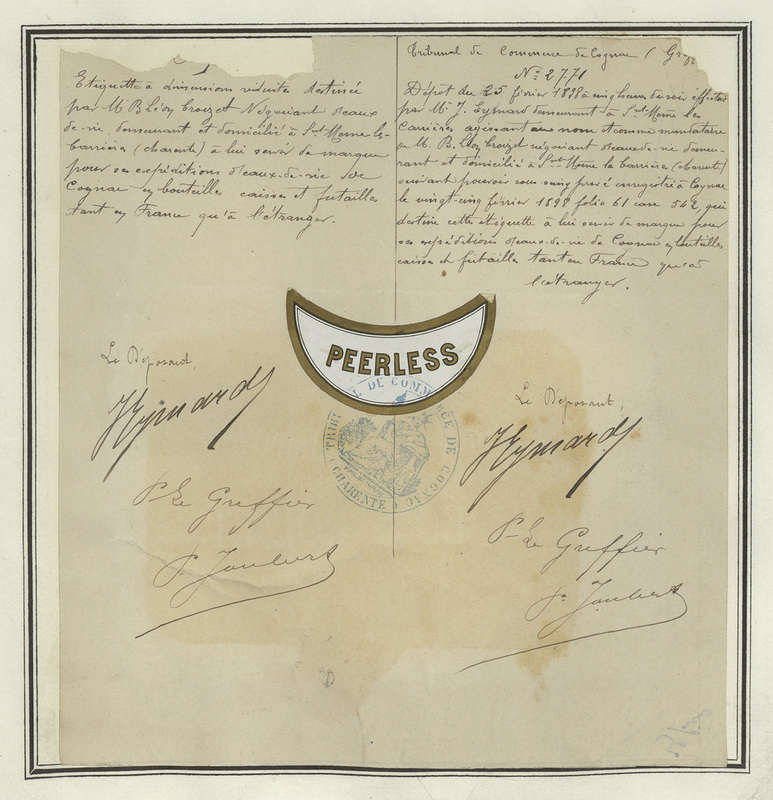 Etiquette à dimensions réduites destinée
par M. B Léon Croizet Négociant d'eaux
de-vie, demeurant et domicilié à St Meme les-
Carrières (charente) à lui servir de marque
pour ses expéditions d'eaux-de-vie de
Cognac en bouteilles caisses et futailles
tant en France qu'à l'étranger.
Le Déposant,
Eymard
Pr Le Greffier
P. Joubert
Tribunal de Commerce de Cognac (
No 2771
Dépôt du 25 février 1898 à cinq heures du soir effectué
par Mr J. Eymard demeurant à St Meme les
Carrières agissant au nom et comme mandataire
de M. B. Léon Croizet négociant d'eaux-de-vie demeu-
rant et domicilié à St Meme les Carrières (charente)
suivant pouvoir sous seing privé enregistré à Cognac
le vingt-cinq février 1898 folio 61 case 542, qui
destine cette étiquette à lui servir de marque pour
ses expéditions d'eaux-de-vie de Cognac en bouteilles
caisses et futailles tant en France qu'à
l'étranger.
PEERLESS
TRIBUNAL DE COMMERCE DE COGNAC
(CHARENTE)
Le Déposant,
Eymard
Pr Le Greffier
P. Joubert